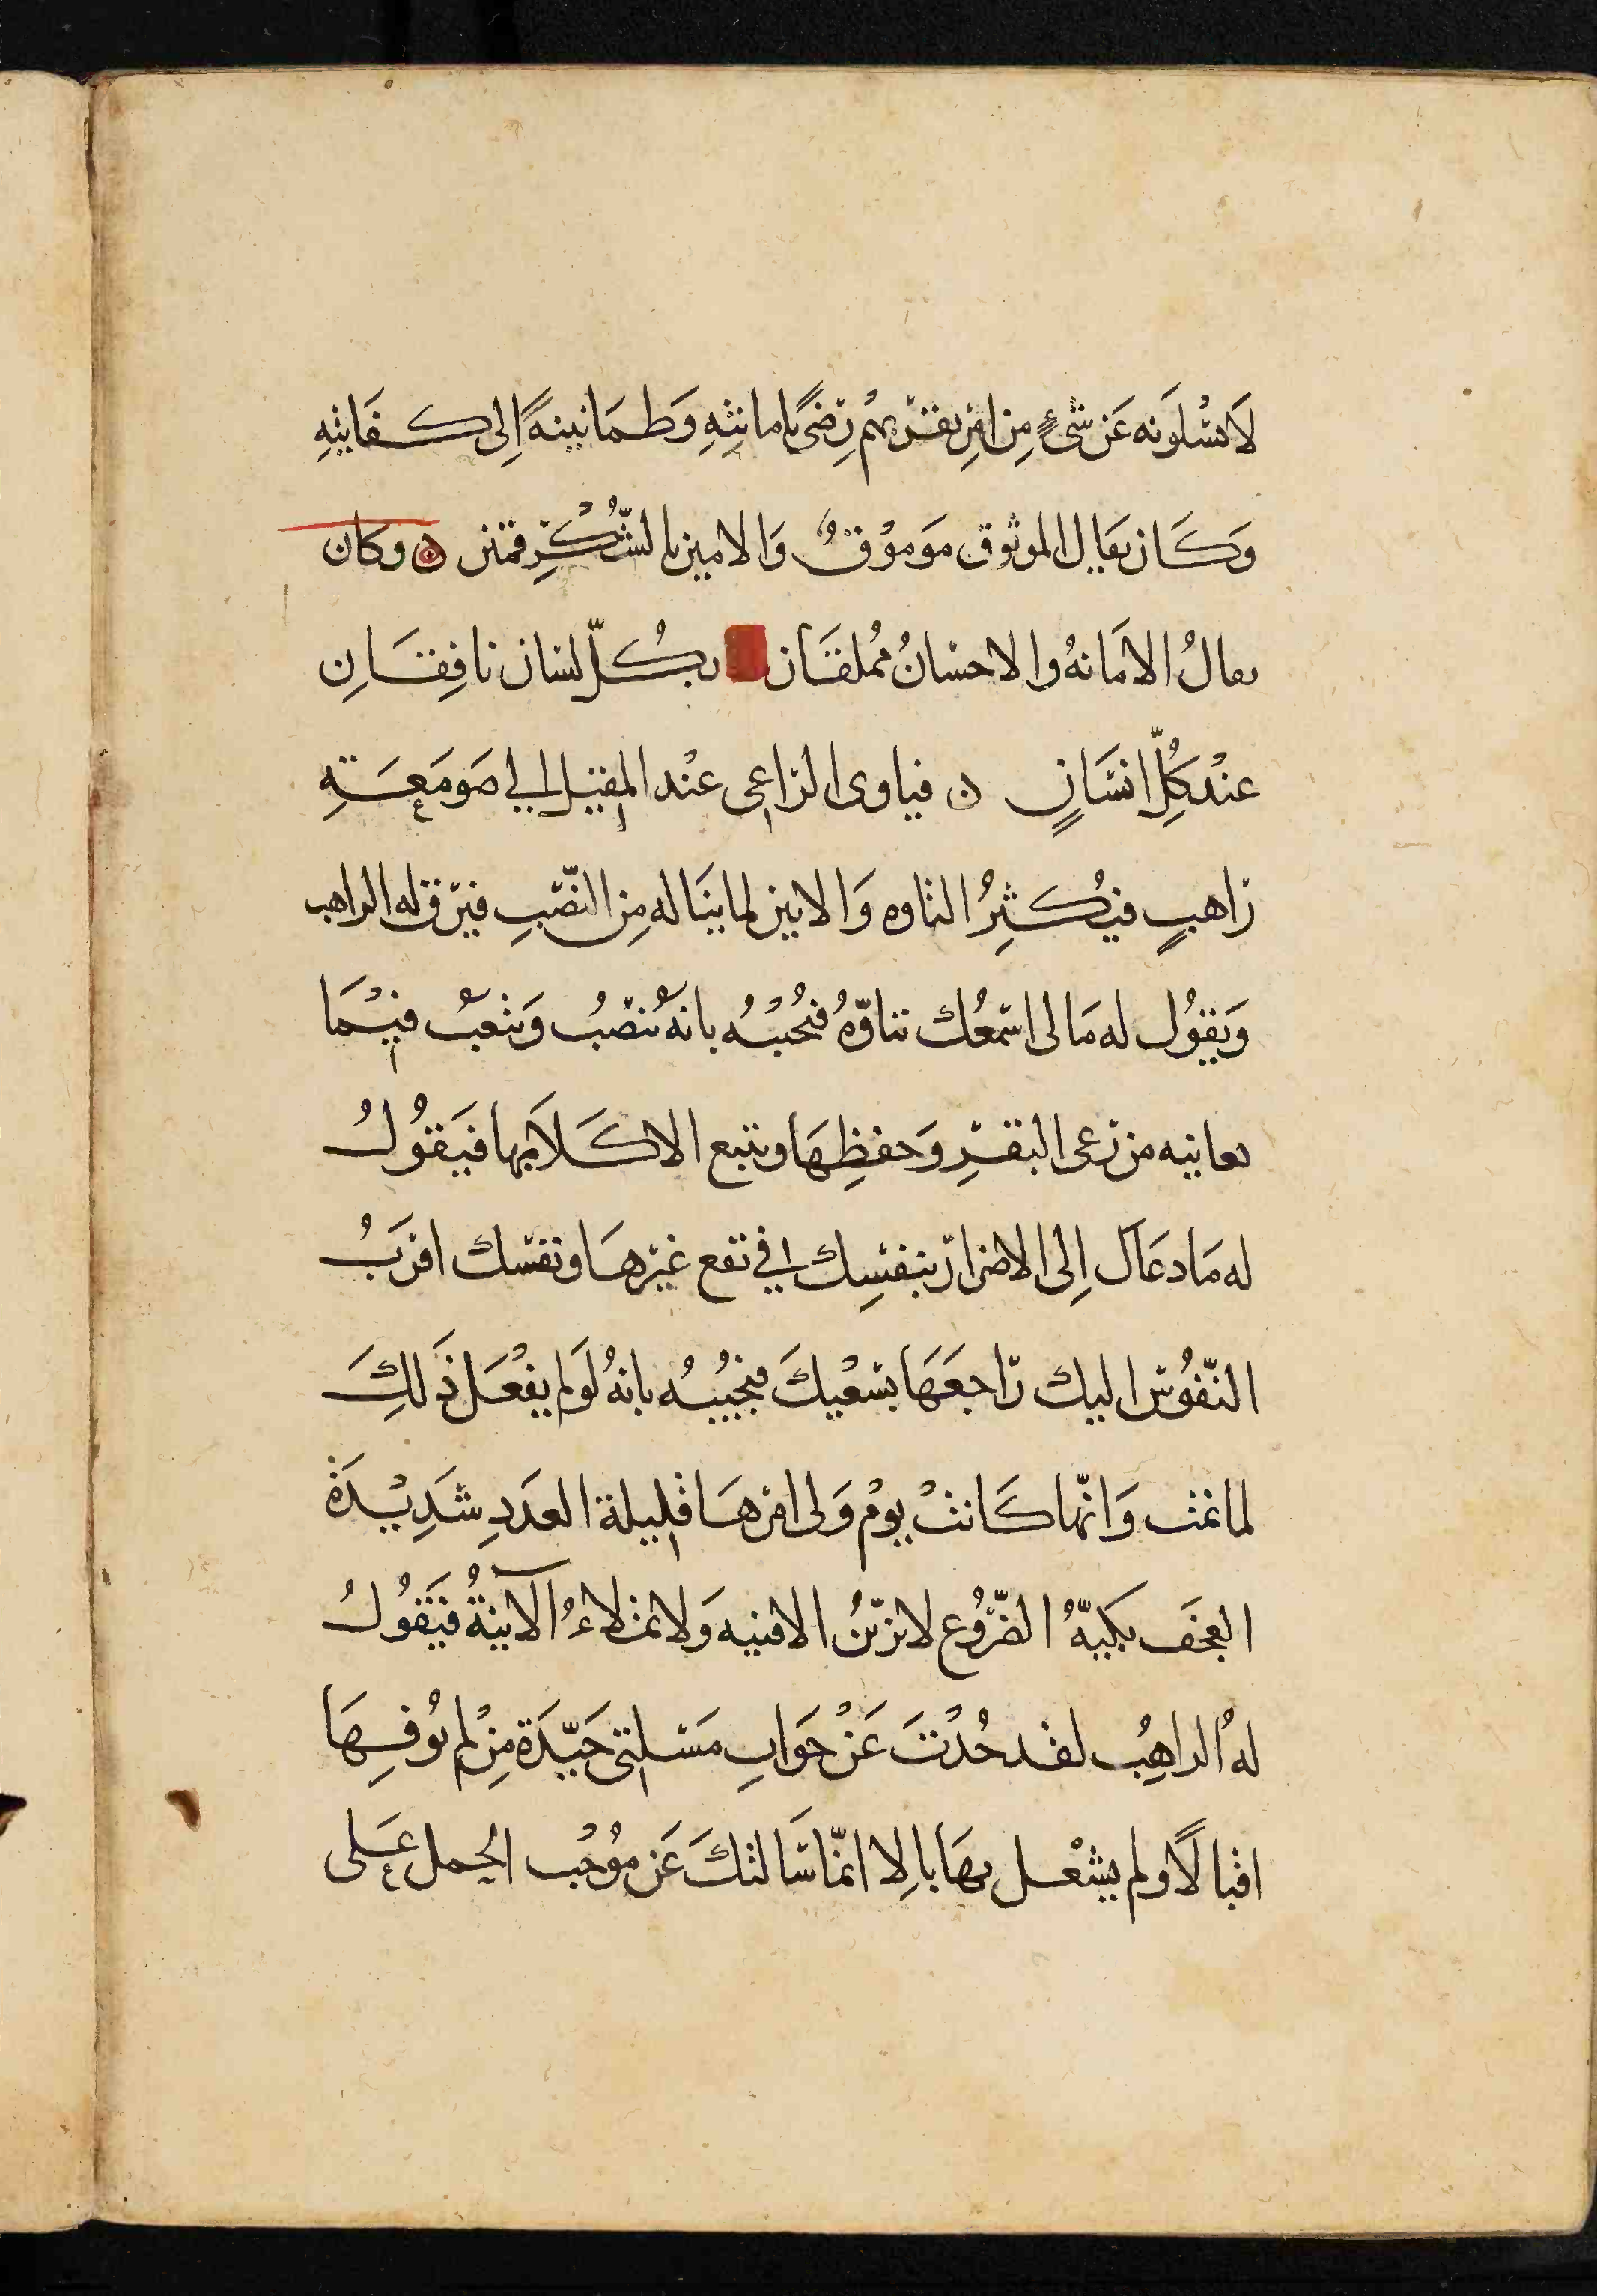 لَا يسْلونَه عَن شَيْءٍ مِن امْرِ بقَرِهِم رِضًى بامانتِهِ وَطمَانينَةً اِلى كفَايتِهِ
وَكَان يقَال الموثوق مَوْمُوْقٌ وَالامين بالشُّكْرِ قمن ۞ وكان
يقالُ الامَانهُ والاحسَانُ مُملقَان بكُلّ لسَان نافِقَانِ
عنْد كُلِّ انسَانٍ ۞ فياوى الرَاعى عنْد المقيل الى صَومَعَتهِ
رَاهبٍ فيُكثِرُ التاوه وَالانين لما ينَاله مِن النّصَبِ فيرق له الراهب
وَيقوُل له مَالى اسْمعُك تتاوّهُ فيُجيبُه بانهُ تنصَبُ وَتتعبُ فيْمَا
يعانيه من رَعى البقَرِ وَحفظِهَا وتتبع الاكلَاءِ بها فيَقوُلُ
له مَا دعَاك اِلى الاضرار بنفسِك في نفع غيْرهَا ونفسك اقرَبُ
النّفوُس اليك رَاجعَهَا بسَعْيكَ فيجيبُه بانهُ لَو لم يفْعَل ذَلكِ
لما نمت وَانّها كَانتْ يوْم وَلى امْرهَا قليلة العدَدِ شَدِيْدَة
العجَف بكيّهُ الضّرُوُع لا تزيّنُ الافنيه وَلا تملاءُ الآنيةُ فيَقُولُ
لهُ الراهِب لقد حُدْتَ عَنْ جَوابِ مَسْلتى حَيْدَة مِنْ لم يُوفِهَا
اقبالًا ولم يشْعل بهَا بالا انمّا سَالتكَ عَن مُوْجب الحمل عَلى